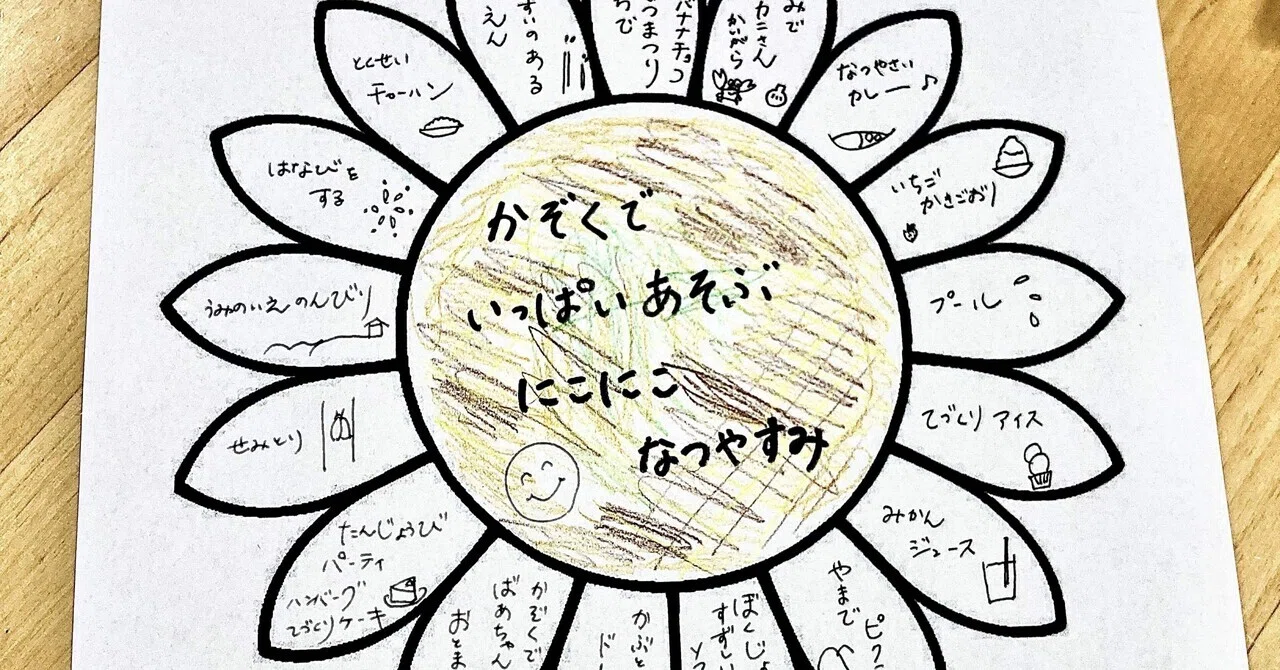 かぞくで
いっぱい あそぶ
にこにこ
なつやすみ
バナナチョコ
つまつり
ちで
みで
カニさん
かいがら
なつやさい
カレー♪
いちご
かきごおり
プール
てづくり アイス
みかん
ジュース
ピク
やまで
ぼくじょ
すずしい
かぶと
かぞくで
ばあちゃん
おとま
たんじょうび
パーティ
ハンバーグ
てづくりケーキ
せみとり
うみのいえ のんびり
はなびを
する
とくせい
チャーハン
すいのある
えん